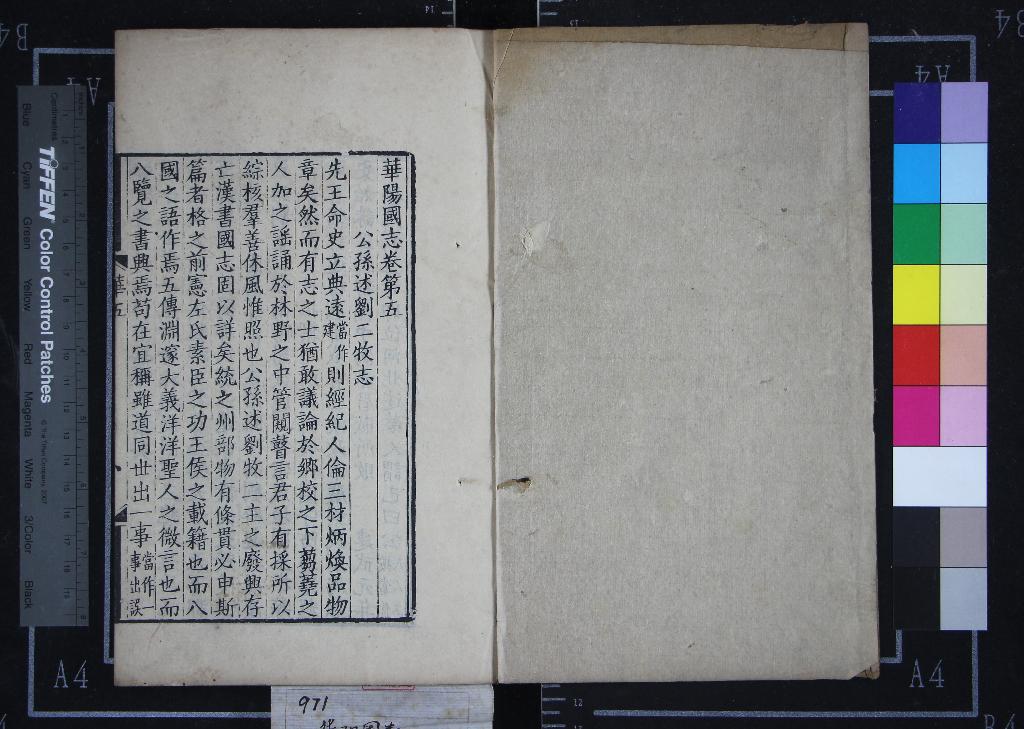 華陽國志卷第五
公孫述劉二牧志
先王命史立典遠當作建則經紀人倫三材炳煥品物
章矣然而有志之士猶敢議論於鄉校之下芻蕘之
人加之謡誦於林野之中管闚瞽言君子有採所以
綜核羣善休風惟照也公孫述劉牧二主之廢興存
亡漢書國志固以詳矣統之州部物有條貫必申斯
篇者格之前憲左氏素臣之功王侯之載籍也而八
國之語作焉五傳淵邃大義洋洋聖人之微言也而
八覽之書興焉苟在宜稱雖道同世出一事當作一事出誤
華五
TIFFEN Color Control Patches
Centimetres
Blue Cyan Green Yellow Red Magenta White 3/Color Black
© The Tiffen Company, 2007
A4
A4
A4
A4
B4
B4
B4
971